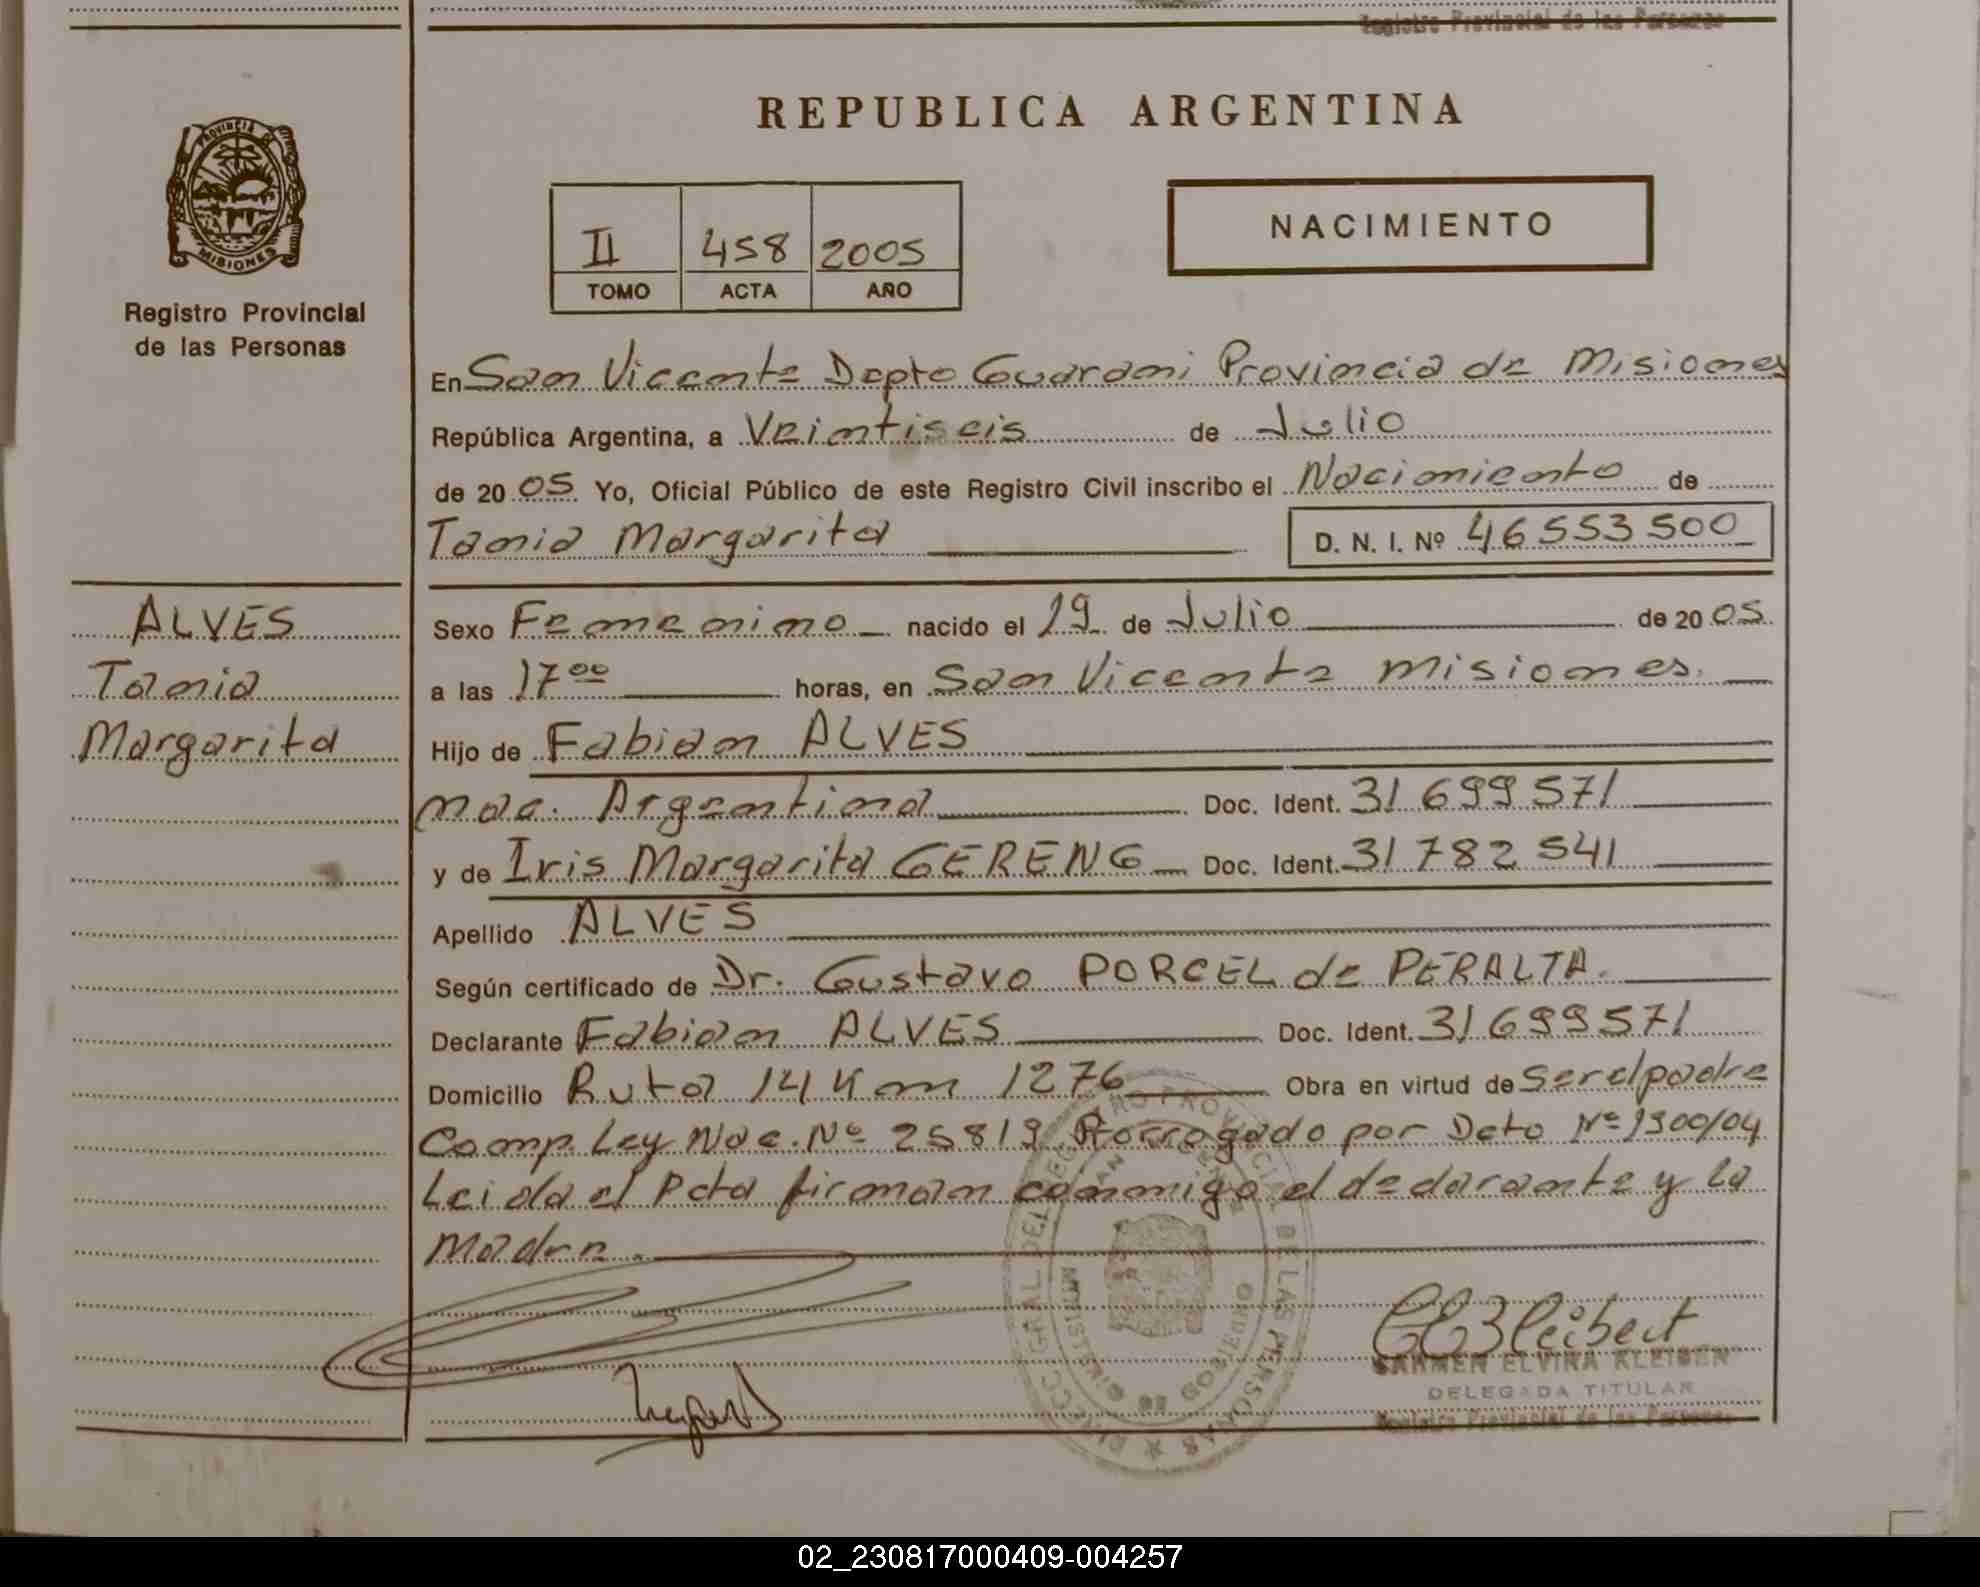 Registro Provincial de las Personas
REPUBLICA ARGENTINA
PROVINCIA DE
MISIONES
Registro Provincial
de las Personas
NACIMIENTO
II 458 2005
TOMO ACTA AÑO
En San Vicente Depto Guarani Provincia de Misiones
República Argentina, a Veintiseis de Julio
de 20 05 Yo, Oficial Público de este Registro Civil inscribo el Nacimiento de
Tania Margarita D. N. I. Nº 46553500
ALVES
Tania
Margarita
Sexo Femenino nacido el 19 de Julio de 20 05
a las 17 00 horas, en San Vicente Misiones.
Hijo de Fabian ALVES
nac. Argentina Doc. Ident. 31 699 571
y de Iris Margarita GERENG Doc. Ident. 31 782 541
Apellido ALVES
Según certificado de Dr. Gustavo PORCEL de PERALTA.
Declarante Fabian ALVES Doc. Ident. 31 699 571
Domicilio Ruta 14 Km 1276 Obra en virtud de Ser el padre
Comp. Ley Nac. Nº 25819 Prorrogado por Dcto Nº 1300/04
Leida el Acta firman conmigo el declarante y la
Madre.
CARMEN ELVIRA KLEIBER
DELEGADA TITULAR
Registro Provincial de las Personas
02_230817000409-004257